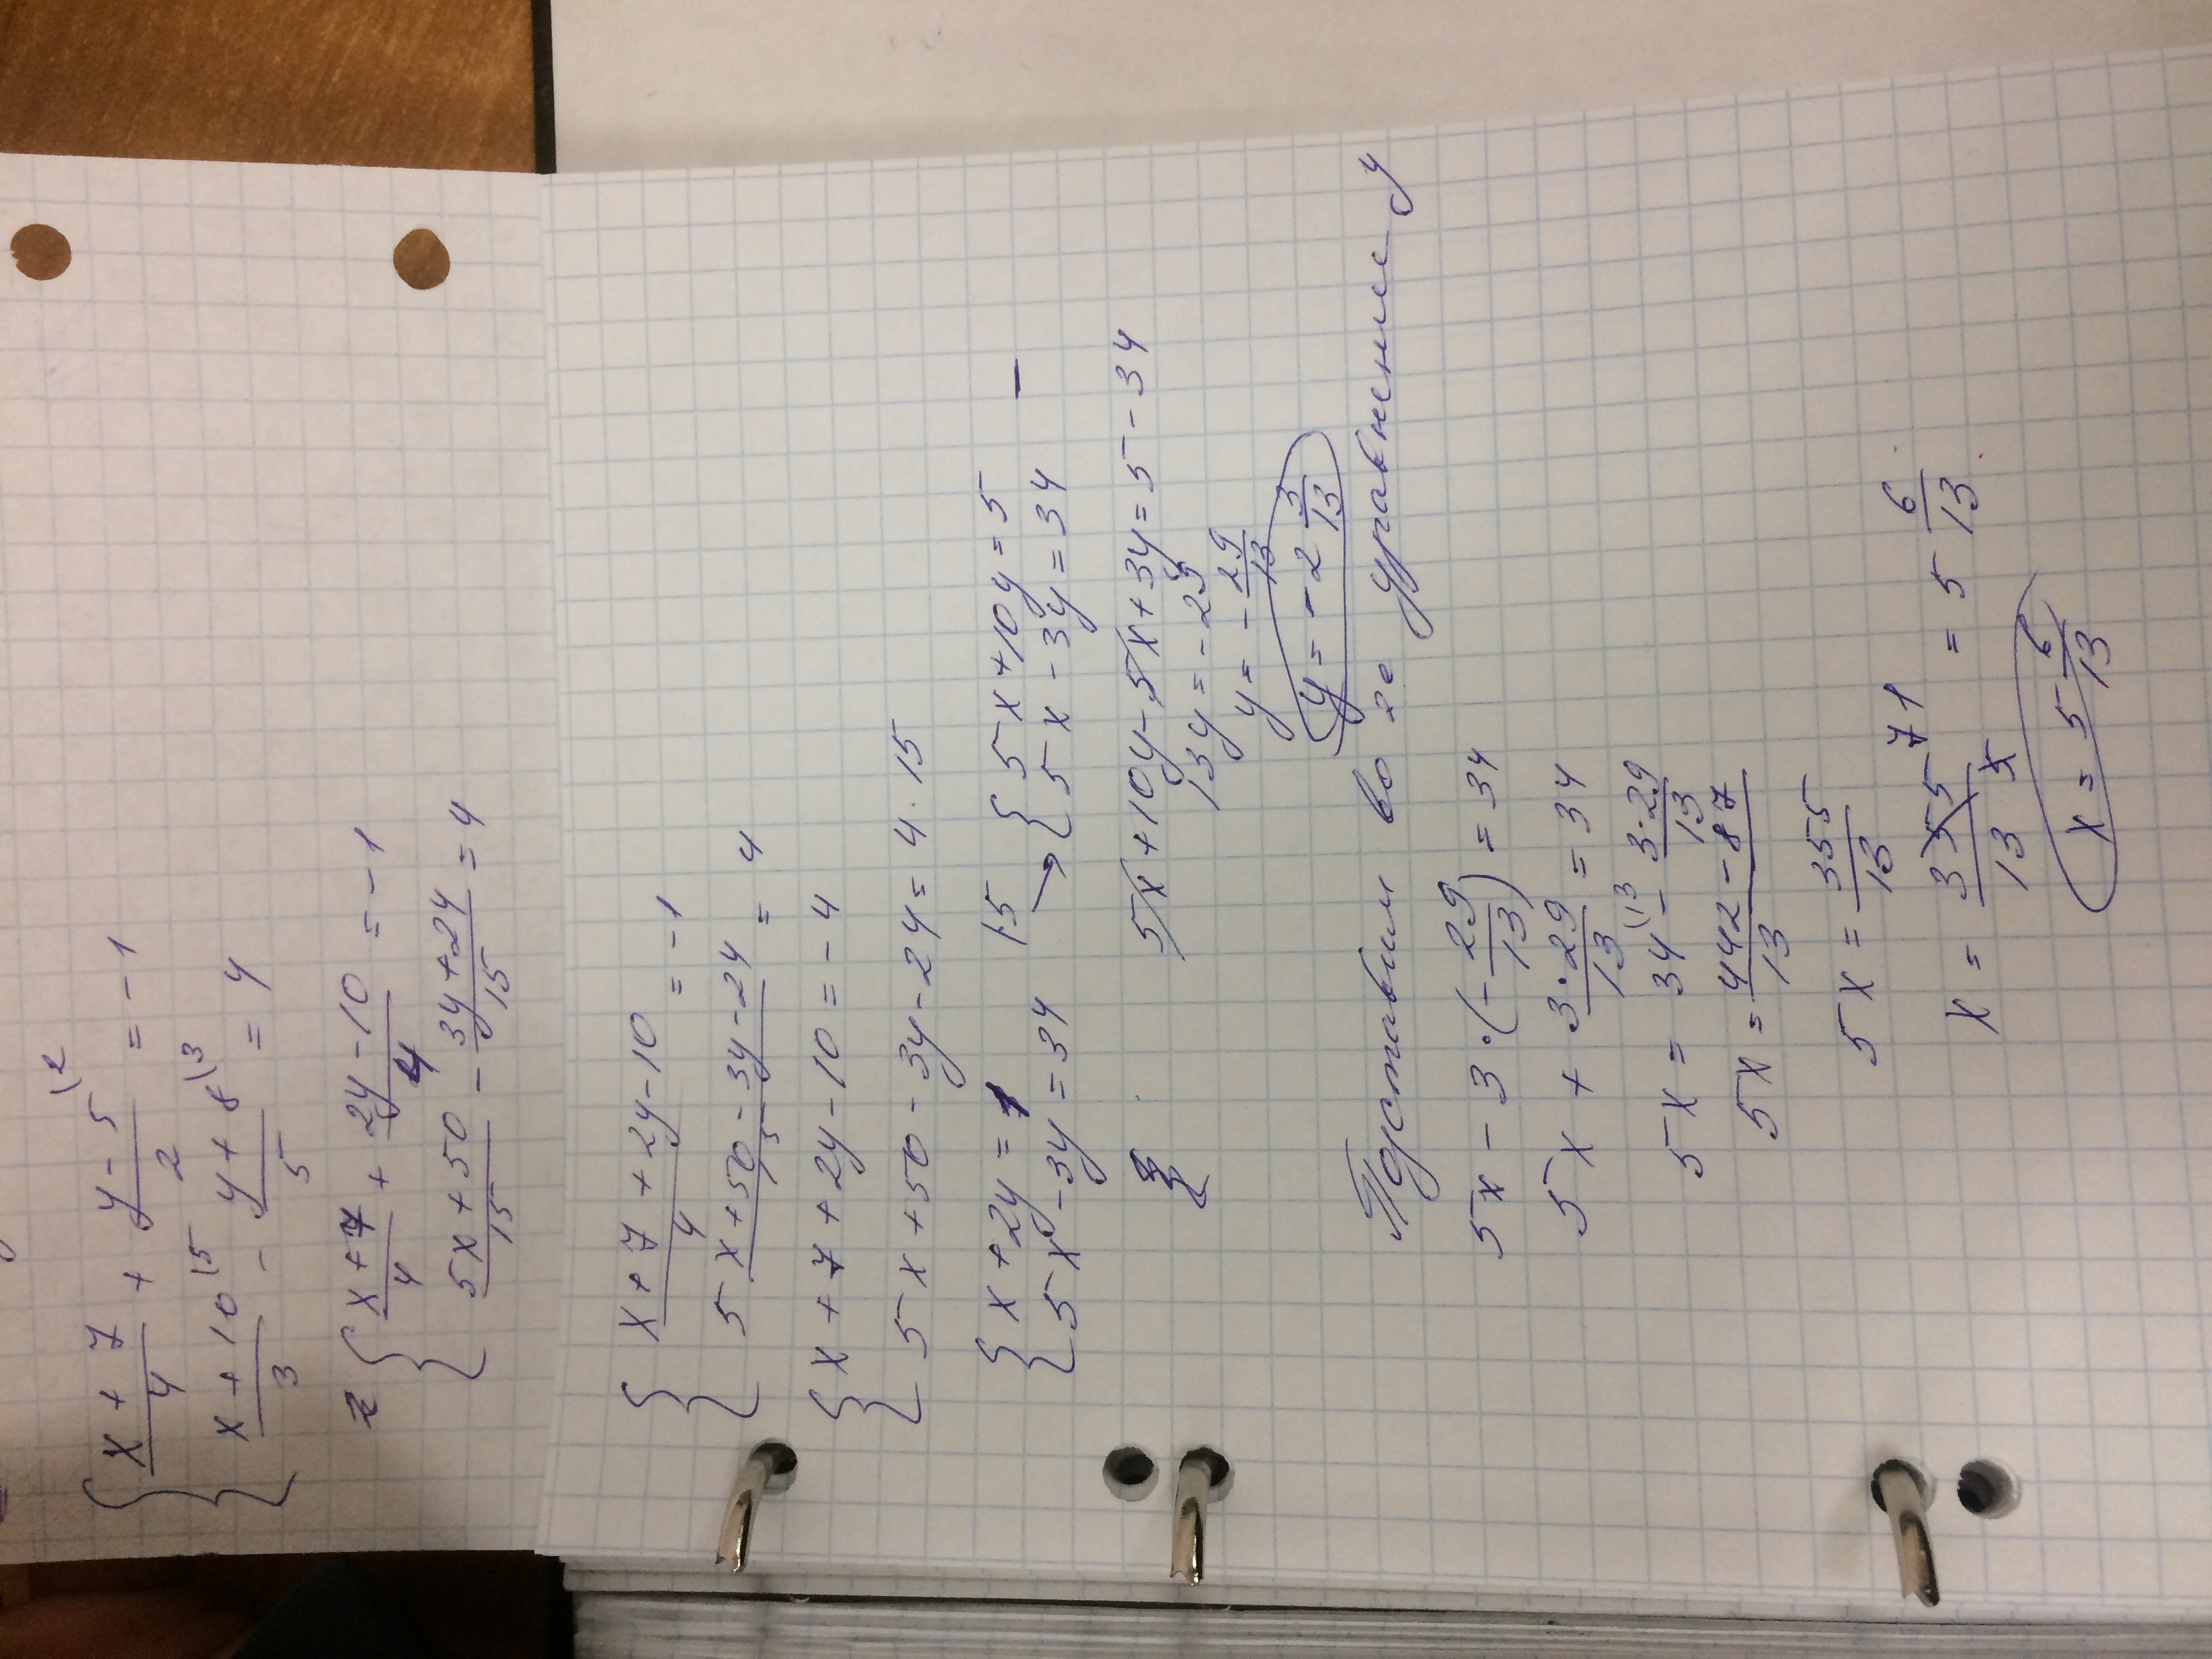 { x+7/4 + y-5\2/2 = -1
x+10\5/3 - y+8\3/5 = 4
{ x+7/4 + 2y-10/4 = -1
5x+50/15 - 3y+24/15 = 4
{ x+7+2y-10/4 = -1
5x+50-3y-24/5 = 4
{ x+7+2y-10=-4
5x+50-3y-24=4·15
{ x+2y=1 |·5 → { 5x+10y=5 —
5x-3y=34 5x-3y=34
5x+10y-5x+3y=5-34
13y=-29
y=-29/13
y=-2 3/13
Подставим во 2е уравнение y
5x-3·(-29/13)=34
5x+3·29/13=34
5x=34\13-3·29/13
5x=442-87/13
5x=355/13
x=355 71/13·5=5 6/13
x=5 6/13